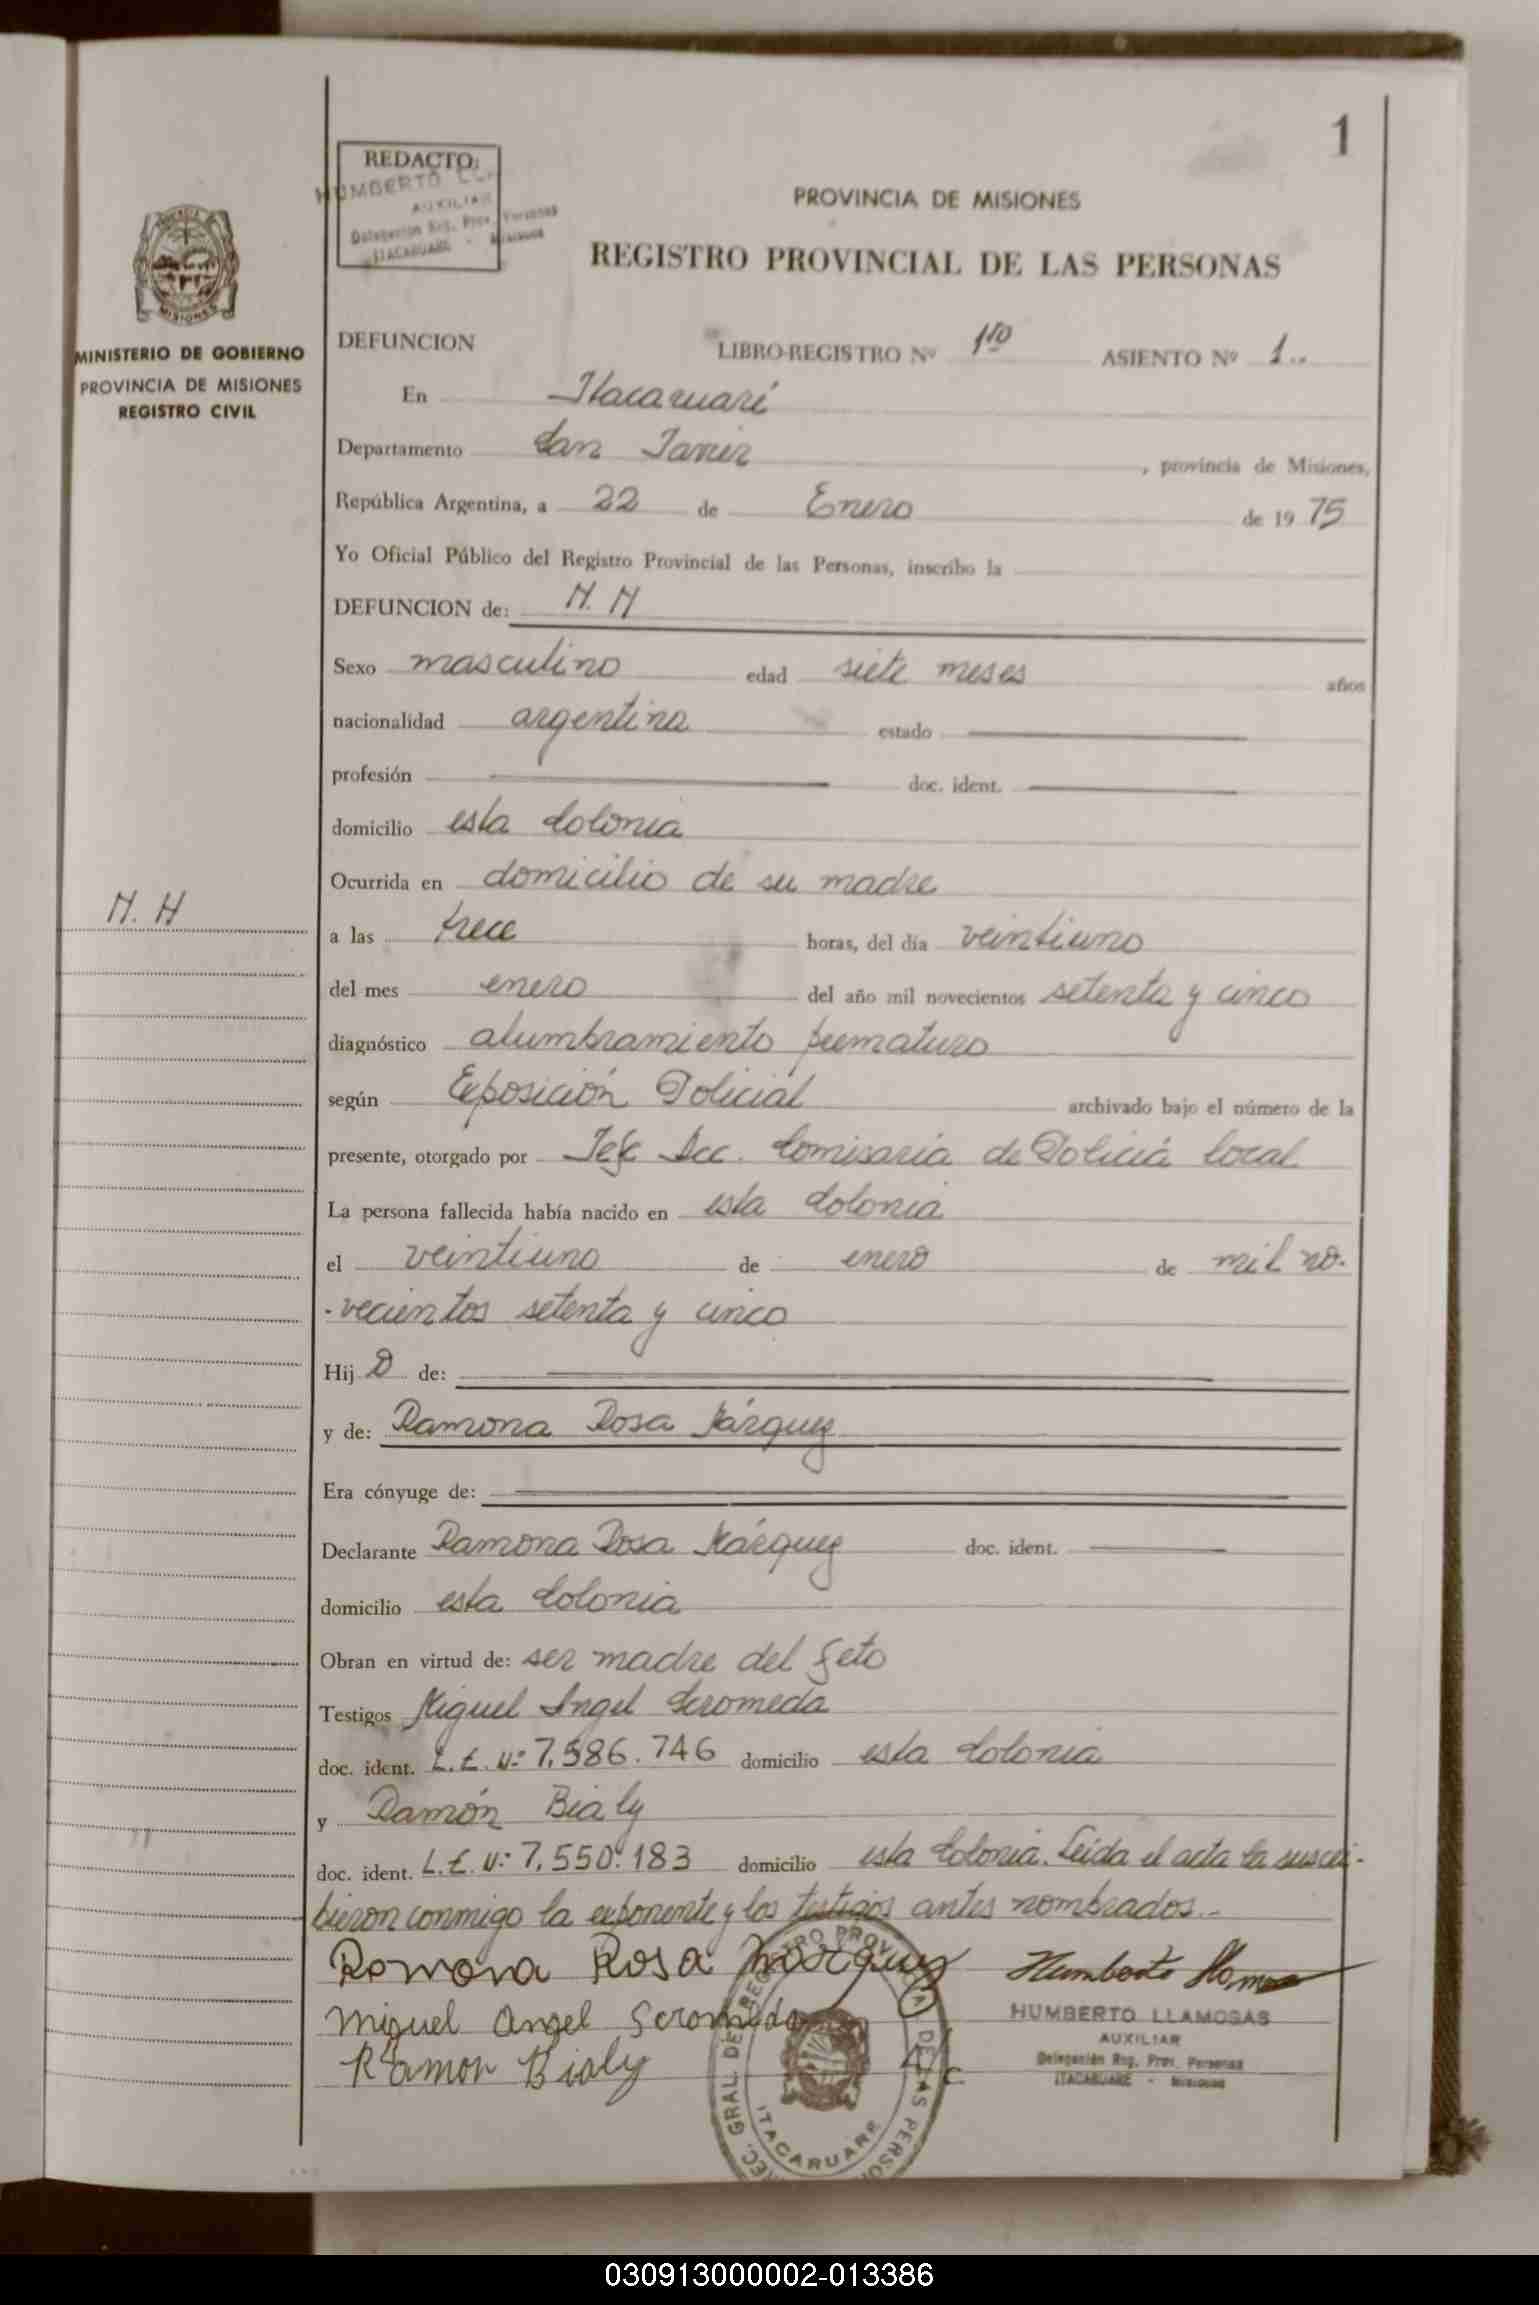 1
REDACTO:
HUMBERTO
AUXILIAR
Delegación Reg. Prov. Personas
ITACARUARE - Misiones
PROVINCIA DE MISIONES
REGISTRO PROVINCIAL DE LAS PERSONAS
MISIONES
MINISTERIO DE GOBIERNO
PROVINCIA DE MISIONES
REGISTRO CIVIL
DEFUNCION LIBRO-REGISTRO Nº 1ro ASIENTO Nº 1..
En Itacaruaré
Departamento San Javier, provincia de Misiones,
República Argentina, a 22 de Enero de 1975
Yo Oficial Público del Registro Provincial de las Personas, inscribo la
DEFUNCION de: N. N
Sexo masculino edad siete meses años
nacionalidad argentina estado
profesión doc. ident.
domicilio esta Colonia
Ocurrida en domicilio de su madre
N. N
a las trece horas, del día veintiuno
del mes enero del año mil novecientos setenta y cinco
diagnóstico alumbramiento prematuro
según Exposición Policial archivado bajo el número de la
presente, otorgado por Jefe Acc. Comisaria de Policiá local
La persona fallecida había nacido en esta Colonia
el veintiuno de enero de mil no-
-vecientos setenta y cinco
Hijo de:
y de: Ramona Rosa Márquez
Era cónyuge de:
Declarante Ramona Rosa Márquez doc. ident.
domicilio esta Colonia
Obran en virtud de: ser madre del feto
Testigos Miguel Angel Scromeda
doc. ident. L.E. Nº 7.586.746 domicilio esta Colonia
y Ramón Bialy
doc. ident. L.E. Nº 7.550.183 domicilio esta Colonia. Leída el acta la suscri-
bieron conmigo la exponente y los testigos antes nombrados.-
Ramona Rosa Marquez
Miguel Angel Scromeda
Ramon Bialy
Humberto Llamosas
HUMBERTO LLAMOSAS
AUXILIAR
Delegación Reg. Prov. Personas
ITACARUARE - Misiones
GRAL. DEL REGISTRO PROVINCIAL DE LAS PERSONAS
ITACARUARE
030913000002-013386